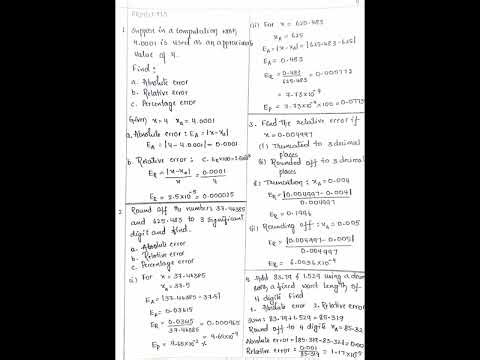 EXAMPLES
1. Suppose in a computation work,
4.0001 is used as an approximate
value of 4.
Find:
a. Absolute error
b. Relative error
c. Percentage error
Given x=4 xA = 4.0001
a. Absolute error: EA = |x-xA|
EA = |4-4.0001| = 0.0001
b. Relative error:
ER = |x-xA| / x = 0.0001 / 4
ER = 2.5×10⁻⁵ = 0.000025
2. Round off the numbers 37.46385
and 625.483 to 3 significant
digit and find.
a. Absolute error
b. Relative error
c. Percentage error
i) For x = 37.46385
xA = 37.5
EA = |37.46385-37.5|
EA = 0.03615
ER = / 37.46385 = 0.000965
(ii) For x = 625.483
xA = 625
EA = |x-xA| = |625.483-625|
EA = 0.483
ER = 0.483 / 625.483 = 0.000772
= 7.73×10⁻⁴
EP = 7.73×10⁻⁴×100 =
3. Find the relative error if
x = 0.004997
(i) Truncated to 3 decimal
places
(ii) Rounded off to 3 decimal
places
(i) Truncation: xA = 0.004
ER = |0.004997-0.004| / 0.004997
ER = 0.1996
(ii) Rounding off: xA = 0.005
ER = |0.004997-0.005| / 0.004997
ER = 6.0036×10⁻⁴
4. Add 83.79 & 1.529 using a
with a fixed word length of
4 digit find
1. Absolute error 2. Relative error
Sum: 83.79+1.529 = 85.319
Round off to 4 digit xA = 85.32
Absolute error = |85.319-85.32| =
Relative error: 0.001 / 85.319 = 1.17×10⁻⁵